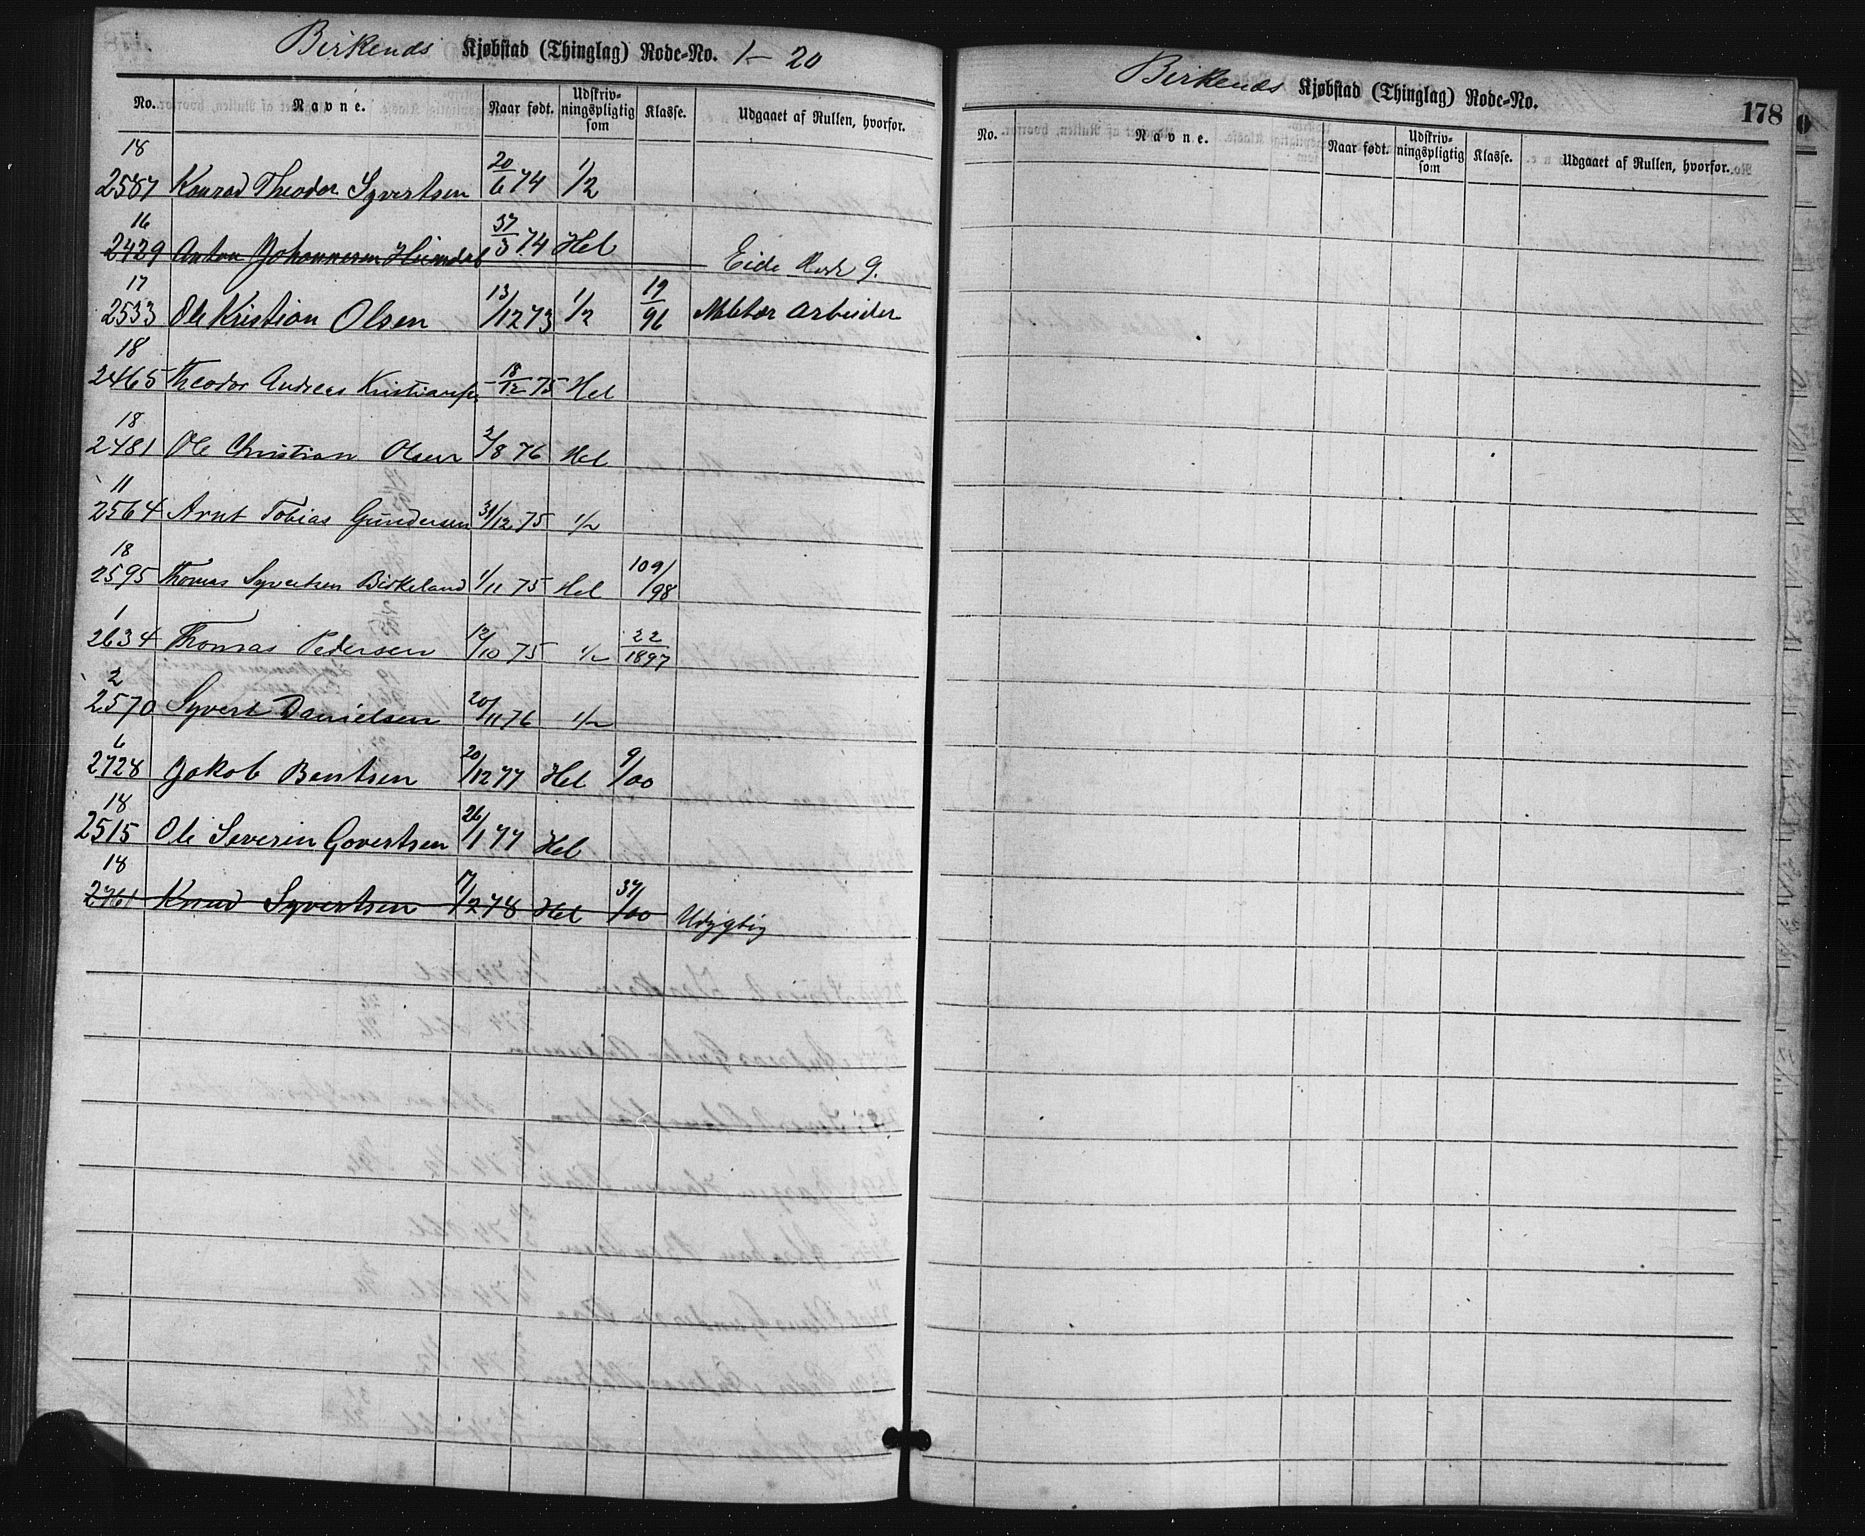 Birkends Kjøbstad (Thinglag) Rode-No. 1 - 20
No. Navne. Naar født. Udskriv-ningspligtig som Klasse. Udgaaet af Rullen, hvorfor.
18
2587 Konrad Theodor Syvertsen 20/6 74 1/2
16
2429 Anton Johannesen Heimdal 37/3 74 Hel Eide Rode 9.
17
2533 Ole Kristian Olsen 13/12 73 1/2 19/96 Militær Arbeider
18
2465 Theodor Andreas Kristiansen 18/12 75 Hel
18
2481 Ole Christian Olsen 2/8 76 Hel
11
2564 Arnt Tobias Gundersen 31/12 75 1/2
18
2595 Thomas Syvertsen Birkeland 1/11 75 Hel 109/98
1
2634 Thomas Pedersen 12/10 75 1/2 22/1897
2
2570 Syvert Danielsen 20/11 76 1/2
6
2728 Jakob Bentsen 20/12 77 Hel 9/00
18
2515 Ole Severin Govertsen 26/1 77 Hel
18
2761 Knud Syvertsen 17/2 78 Hel 37/00 Udygtig
Birkends Kjøbstad (Thinglag) Rode-No.
178
No. Navne. Naar født. Udskriv-ningspligtig som Klasse. Udgaaet af Rullen, hvorfor.